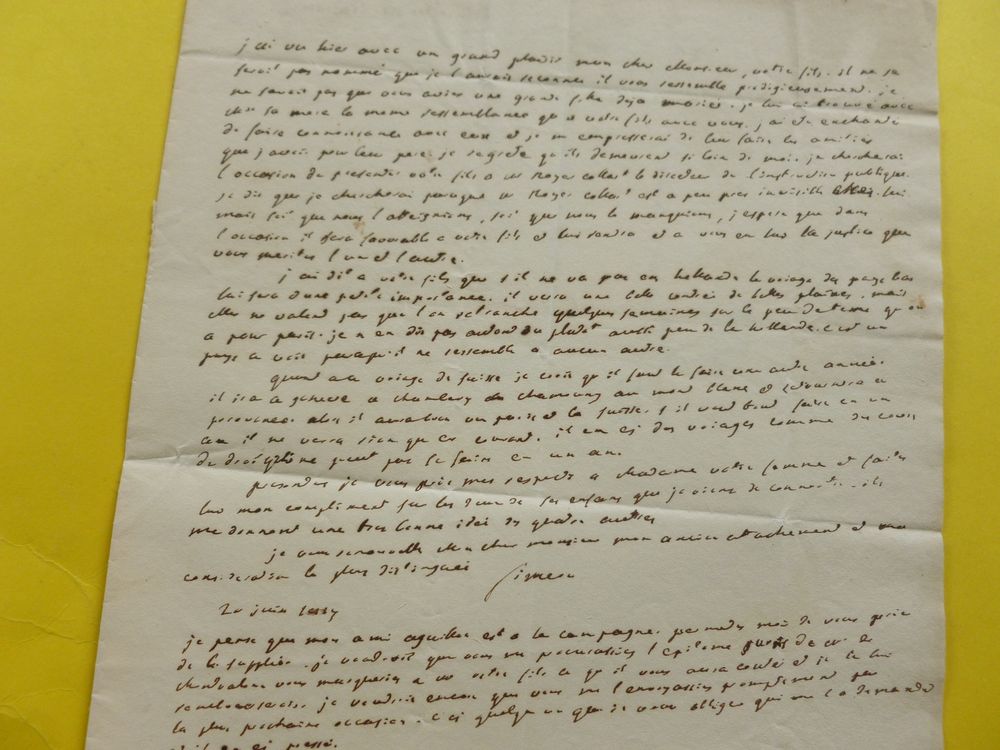 j'ai vu hier avec un grand plaisir mon cher Monsieur, votre fils. il ne se
serait pas nommé que je l'aurais reconnu il vous ressemble prodigieusement. je
ne savais pas que vous aviez une grande fille deja mariée. je lui ai trouvé avec
sa mere la meme ressemblance qu'a votre fils avec vous. j'ai été enchanté
de faire connoissance avec eux et je m'empresserai de leur faire les amitiés
que j'avois pour leur pere. je regrette qu'ils demeurent si loin de moi. je chercherai
l'occasion de presenter votre fils a mr Royer collard le directeur de l'instruction publique.
je dis que je chercherai parceque mr Royer collard est a peu pres invisible chez lui
mais soit que nous l'atteignions, soit que nous le manquions, j'espere que dans
l'occasion il sera favorable a votre fils et lui rendra et a vous en lui la justice que
vous meritez l'un et l'autre.
j'ai dit a votre fils que s'il ne va pas en hollande le voyage des pays bas
lui sera d'une petite importance. il verra une belle contrée de belles plaines, mais
elles ne valent pas que l'on retranche quelques semaines sur le peu de tems qu'on
a pour paris. je n'en dis pas autant ou plutot aussi peu de la hollande. c'est un
pays a voir parcequ'il ne ressemble a aucun autre.
quant au voyage de suisse je crois qu'il faut le faire une autre année.
il ira a geneve a chambery a chamouny au mont blanc et retournera a
provence. alors il aura vu paris et la suisse. s'il veut tout faire en un
an il ne verra rien qu'en courant. il en est des voyages comme des cours
de discipline peut pas se faire en un an.
presentez je vous prie mes respects a Madame votre femme et faites
lui mon compliment sur les deux de ses enfans que je viens de connoitre. ils
me donnent une tres bonne idée des quatre autres
je vous renouvelle mon cher monsieur mon ancien attachement et ma
consideration la plus distinguée Simeon
20 juin
je pense que mon ami est a la campagne. permettez moi de vous prier
de le suppléer. je voudrois que vous me procurassiez l'epitome de
vous marquerez a votre fils ce qu'il vous aura couté et je le lui
rembourserai. je voudrois encore que vous me l'envoyassiez promptement par
la plus prochaine occasion. c'est quelqu'un que je veux obliger qui me l'a demandé
et il en est pressé.